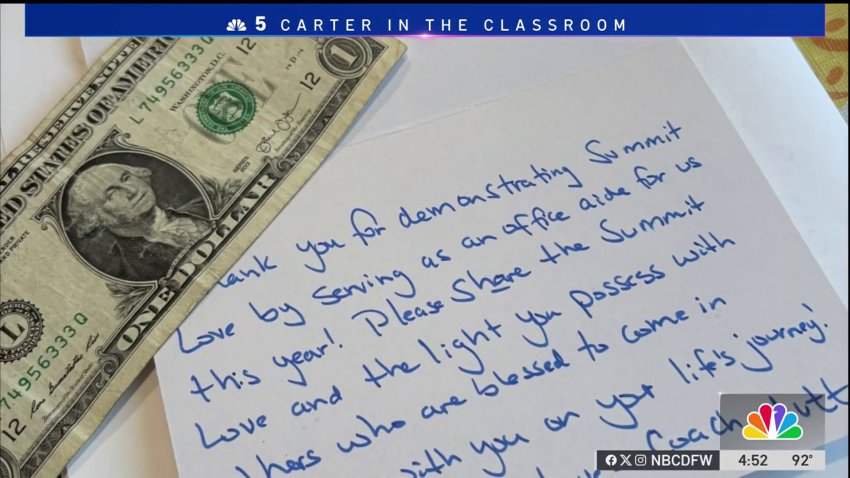 5 CARTER IN THE CLASSROOM
STATES OF AMERICA
L 74956333 Q
WASHINGTON, D.C.
12
1
12
SERIES
ONE DOLLAR
L
74956333 Q
12
ank you for demonstrating Summit
Love by serving as an office aide for us
this year! Please Share the Summit
Love and the light you possess with
thers who are blessed to come in
with you on your life's journey!
Coach
NBCDFW
4:52 92°